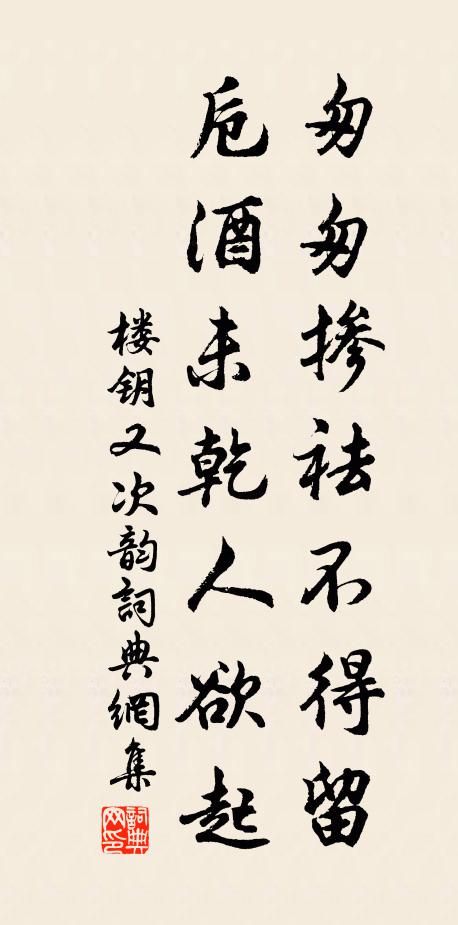 匆匆掺祛不得留
卮酒未乾人欲起
楼钥又次韵詞典網集
詞典网印